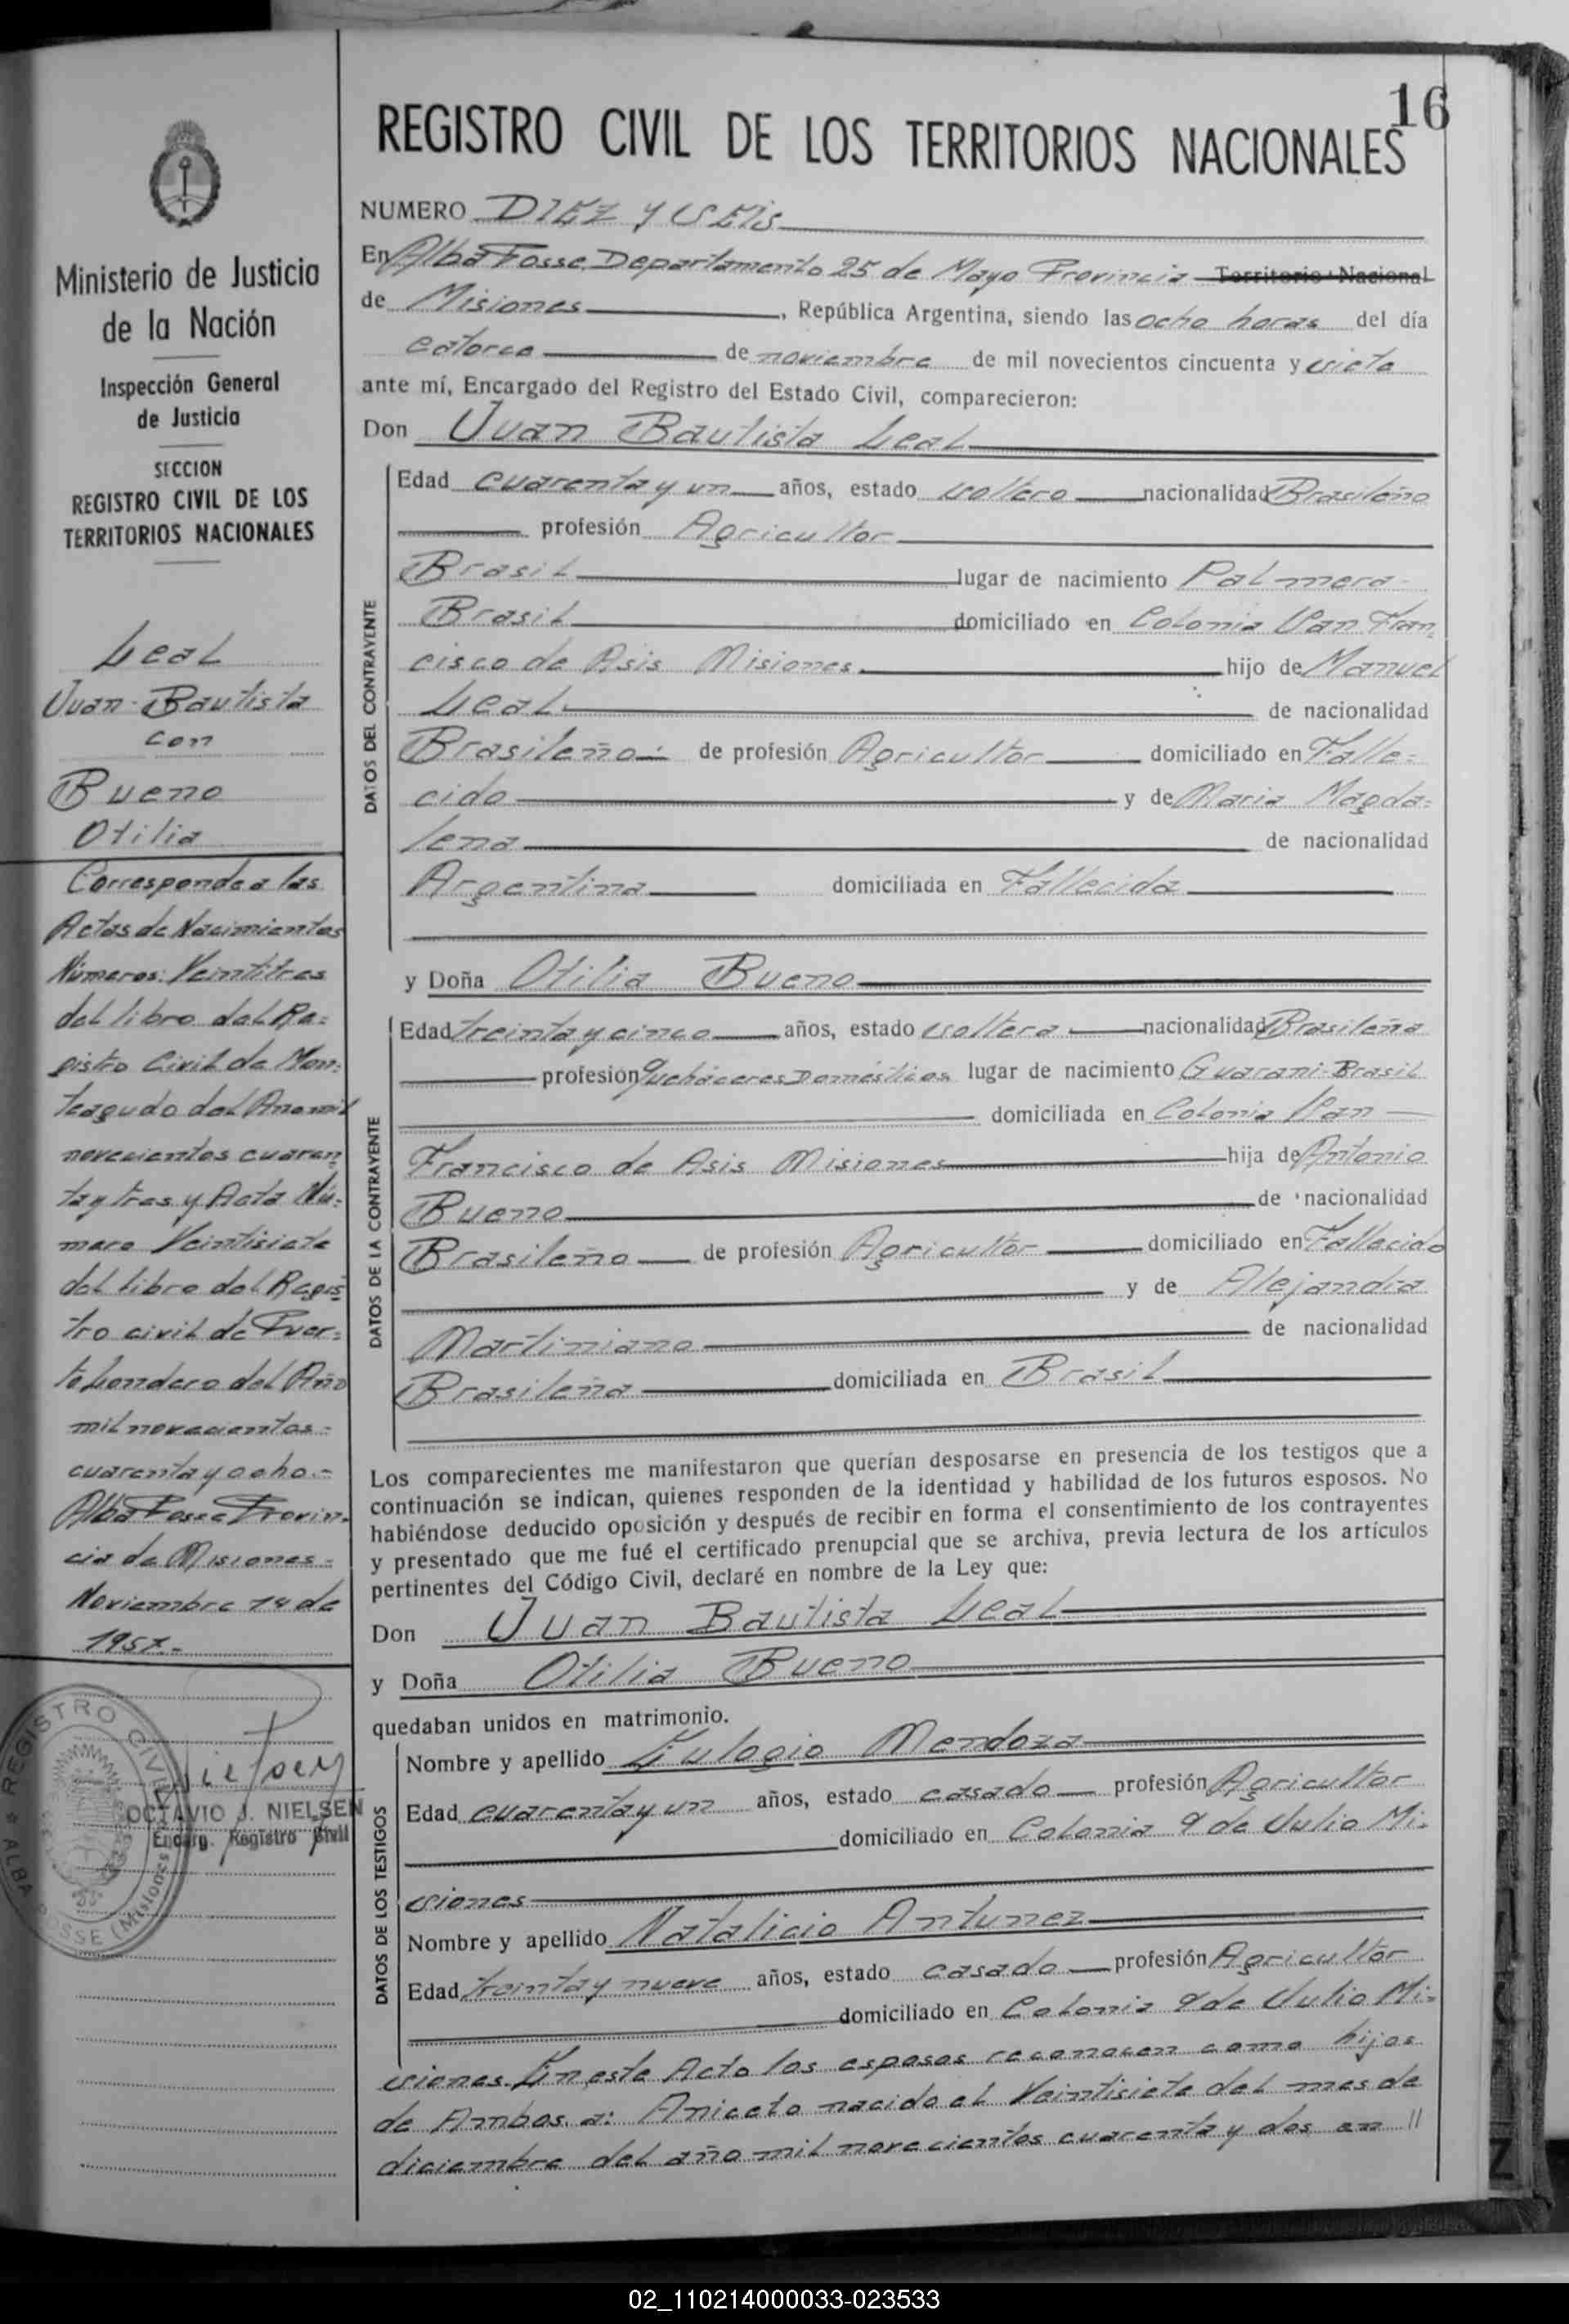 16
REGISTRO CIVIL DE LOS TERRITORIOS NACIONALES
Ministerio de Justicia
de la Nación
Inspección General
de Justicia
SECCION
REGISTRO CIVIL DE LOS
TERRITORIOS NACIONALES
Leal
Juan Bautista
con
Bueno
Otilia
Corresponde a las
Actas de Nacimientos
Números: Veintitres
del libro del Re=
gistro Civil de Mon=
teagudo del Año mil
novecientos cuaren
ta y tres y Acta Nú=
mero Veintisiete
del libro del Regis
tro civil de Puer=
to Londero del Año
mil novecientos=
cuarenta y ocho.-
Alba Posse Provin=
cia de Misiones=
Noviembre 14 de
1957.-
REGISTRO CIVIL
ALBA POSSE (Misiones)
OCTAVIO J. NIELSEN
Encarg. Registro Civil
NUMERO DIEZ Y SEIS
En Alba Posse Departamento 25 de Mayo Provincia Territorio Nacional
de Misiones, República Argentina, siendo las ocho horas del día
catorce de noviembre de mil novecientos cincuenta y siete
ante mí, Encargado del Registro del Estado Civil, comparecieron:
Don Juan Bautista Leal
DATOS DEL CONTRAYENTE
Edad cuarenta y un años, estado soltero nacionalidad Brasileño
profesión Agricultor
Brasil lugar de nacimiento Palmera-
Brasil domiciliado en Colonia San Fran=
cisco de Asis Misiones. hijo de Manuel
Leal de nacionalidad
Brasileño- de profesión Agricultor domiciliado en Falle=
cido y de Maria Magda=
lena de nacionalidad
Argentina domiciliada en Fallecida
y Doña Otilia Bueno
DATOS DE LA CONTRAYENTE
Edad treinta y cinco años, estado soltera nacionalidad Brasileña
profesión Quehaceres Domésticos lugar de nacimiento Guarani-Brasil
domiciliada en Colonia San
Francisco de Asis Misiones hija de Antonio
Bueno de nacionalidad
Brasileño de profesión Agricultor domiciliado en Fallecido
y de Alejandra
Martimiano de nacionalidad
Brasileña domiciliada en Brasil
Los comparecientes me manifestaron que querían desposarse en presencia de los testigos que a
continuación se indican, quienes responden de la identidad y habilidad de los futuros esposos. No
habiéndose deducido oposición y después de recibir en forma el consentimiento de los contrayentes
y presentado que me fué el certificado prenupcial que se archiva, previa lectura de los artículos
pertinentes del Código Civil, declaré en nombre de la Ley que:
Don Juan Bautista Leal
y Doña Otilia Bueno
quedaban unidos en matrimonio.
DATOS DE LOS TESTIGOS
Nombre y apellido Eulogio Mendoza
Edad cuarenta y un años, estado casado profesión Agricultor
domiciliado en Colonia 9 de Julio Mi=
siones
Nombre y apellido Natalicio Antunez
Edad treinta y nueve años, estado casado profesión Agricultor
domiciliado en Colonia 9 de Julio Mi=
siones. En este Acto los esposos reconocen como hijos
de Ambos a: Aniceto nacido el Veintisiete del mes de
diciembre del año mil novecientos cuarenta y dos en //
02_110214000033-023533